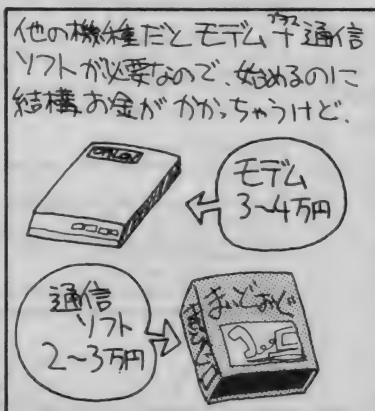 他の機種だとモデム＋プラス通信
ソフトが必要なので、始めるのに
結構お金がかかっちゃうけど、
モデム
3～4万円
通信
ソフト
2～3万円
まいとおく